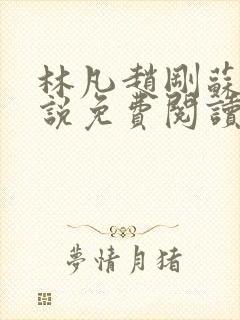 林凡趙剛蘇
說免費閱讀
夢情月猪